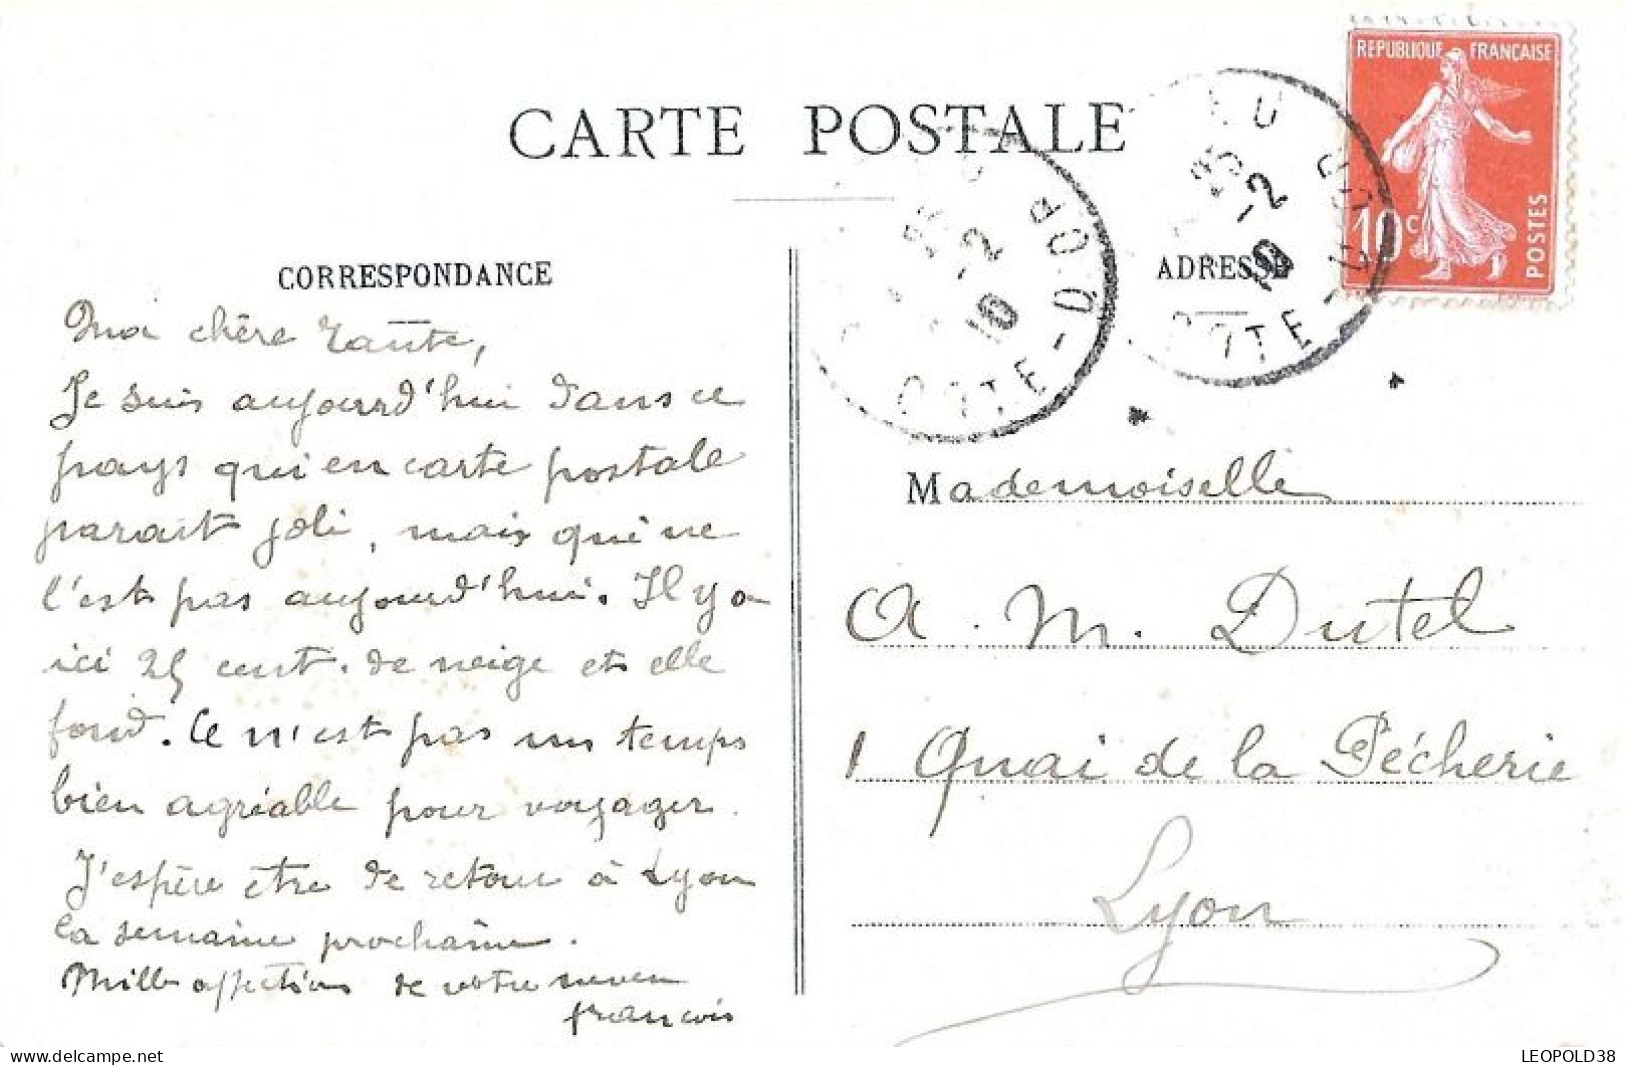 CARTE POSTALE
CORRESPONDANCE
Ma chère Tante,
Je suis aujourd'hui dans ce
pays qui en carte postale
parait joli, mais qui ne
l'est pas aujourd'hui. Il y a
ici 25 cent. de neige et elle
fond. Ce n'est pas un temps
bien agréable pour voyager.
J'espère être de retour à Lyon
la semaine prochaine.
Mille affections de votre neveu
françois
REPUBLIQUE FRANÇAISE
10c
POSTES
25 -2
10
COTE-D'OR
25 -2
10
COTE-D'OR
ADRESSE
Mademoiselle
A. M. Dutel
1 Quai de la Pécherie
Lyon
www.delcampe.net
LEOPOLD38